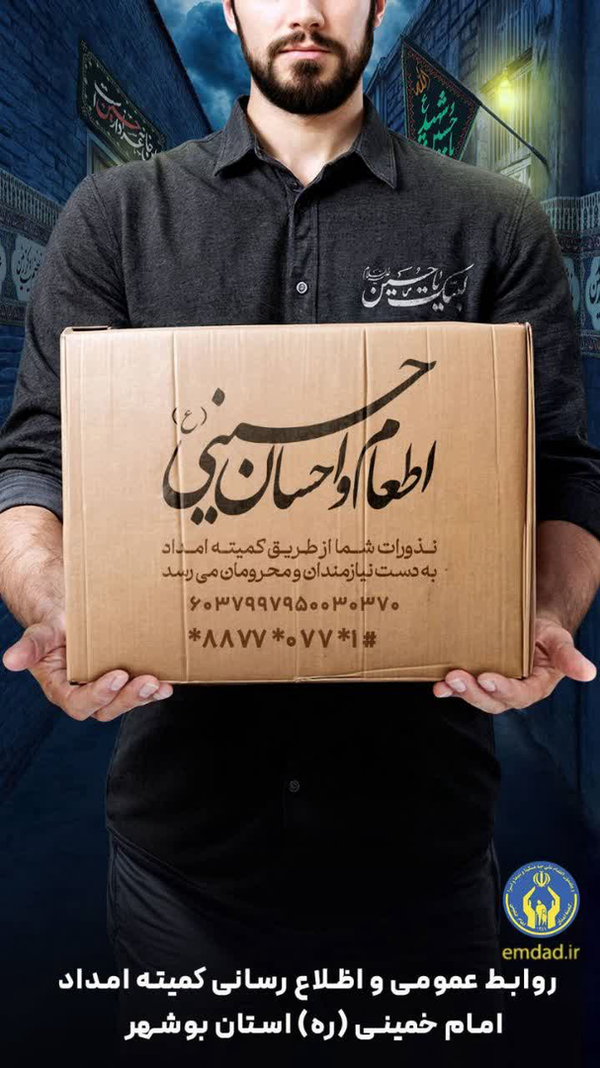 لبیک یا حسین علیه السلام
اطعام و احسان حسینی (ع)
نذورات شما از طریق کمیته امداد
به دست نیازمندان و محرومان می رسد
۶۰۳۷۹۹۷۹۵۰۰۳۰۳۷۰
*۸۸۷۷*۰۷۷*۱#
emdad.ir
روابط عمومی و اظلاع رسانی کمیته امداد
امام خمینی (ره) استان بوشهر